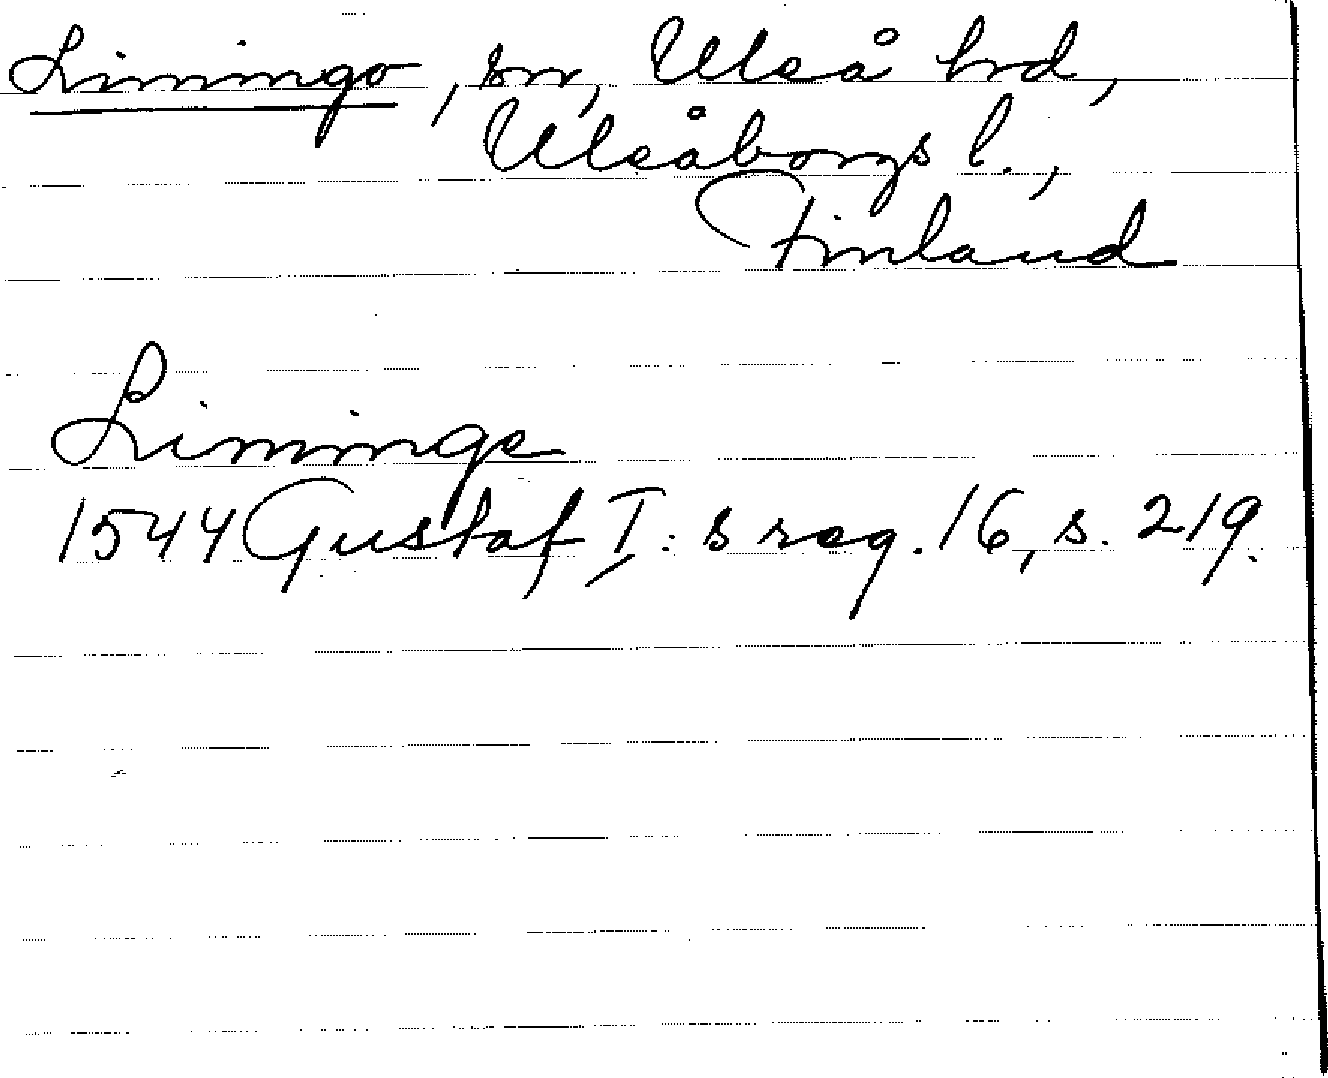 Limingo, sn, Uleå hd,
Uleåborgs l.,
Finland
Liminge
1544 Gustaf I: s reg. 16, s. 219.